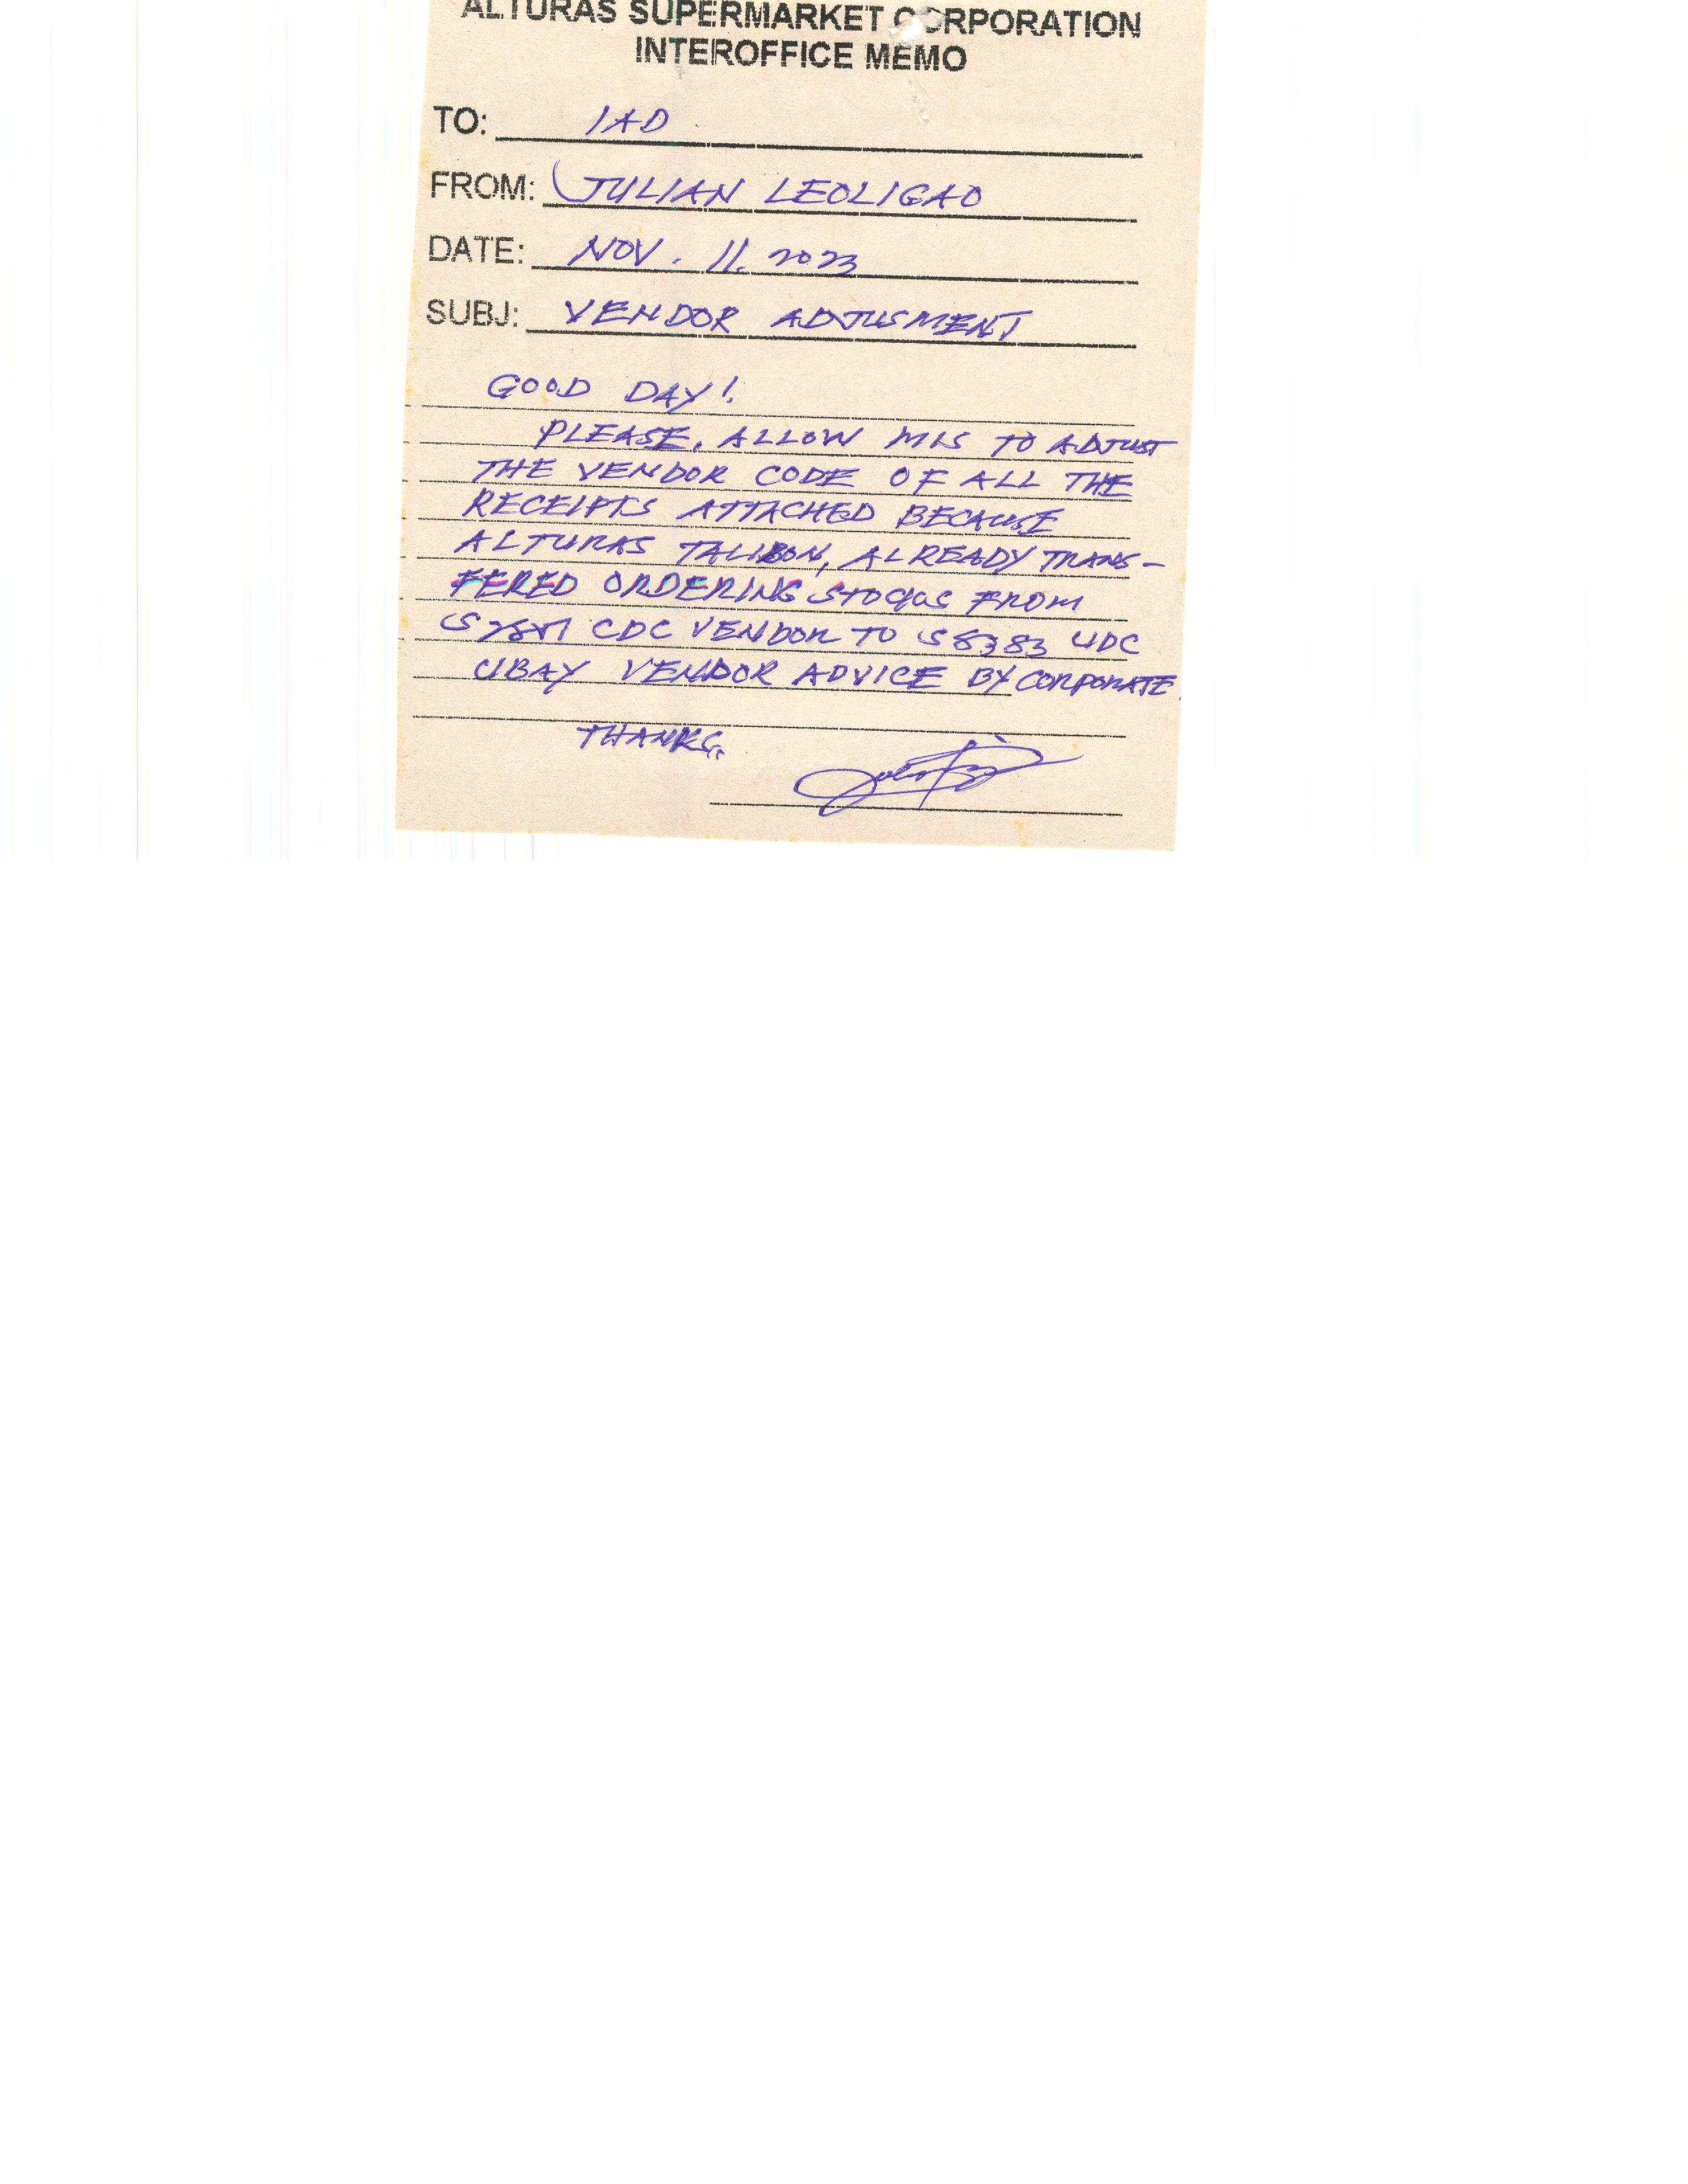 ALTURAS SUPERMARKET CORPORATION
INTEROFFICE MEMO
TO: IAD
FROM: JULIAN LEOLIGAO
DATE: NOV. 11. 2023
SUBJ: VENDOR ADJUSMENT
GOOD DAY!
PLEASE, ALLOW MIS TO ADJUST
THE VENDOR CODE OF ALL THE
RECEIPTS ATTACHED BECAUSE
ALTURAS TALIBON, ALREADY TRANS-
FERED ORDERING FROM
CDC VENDOR TO S8383 UDC
UBAY VENDOR ADVICE BY CORPORATE.
THANKS.